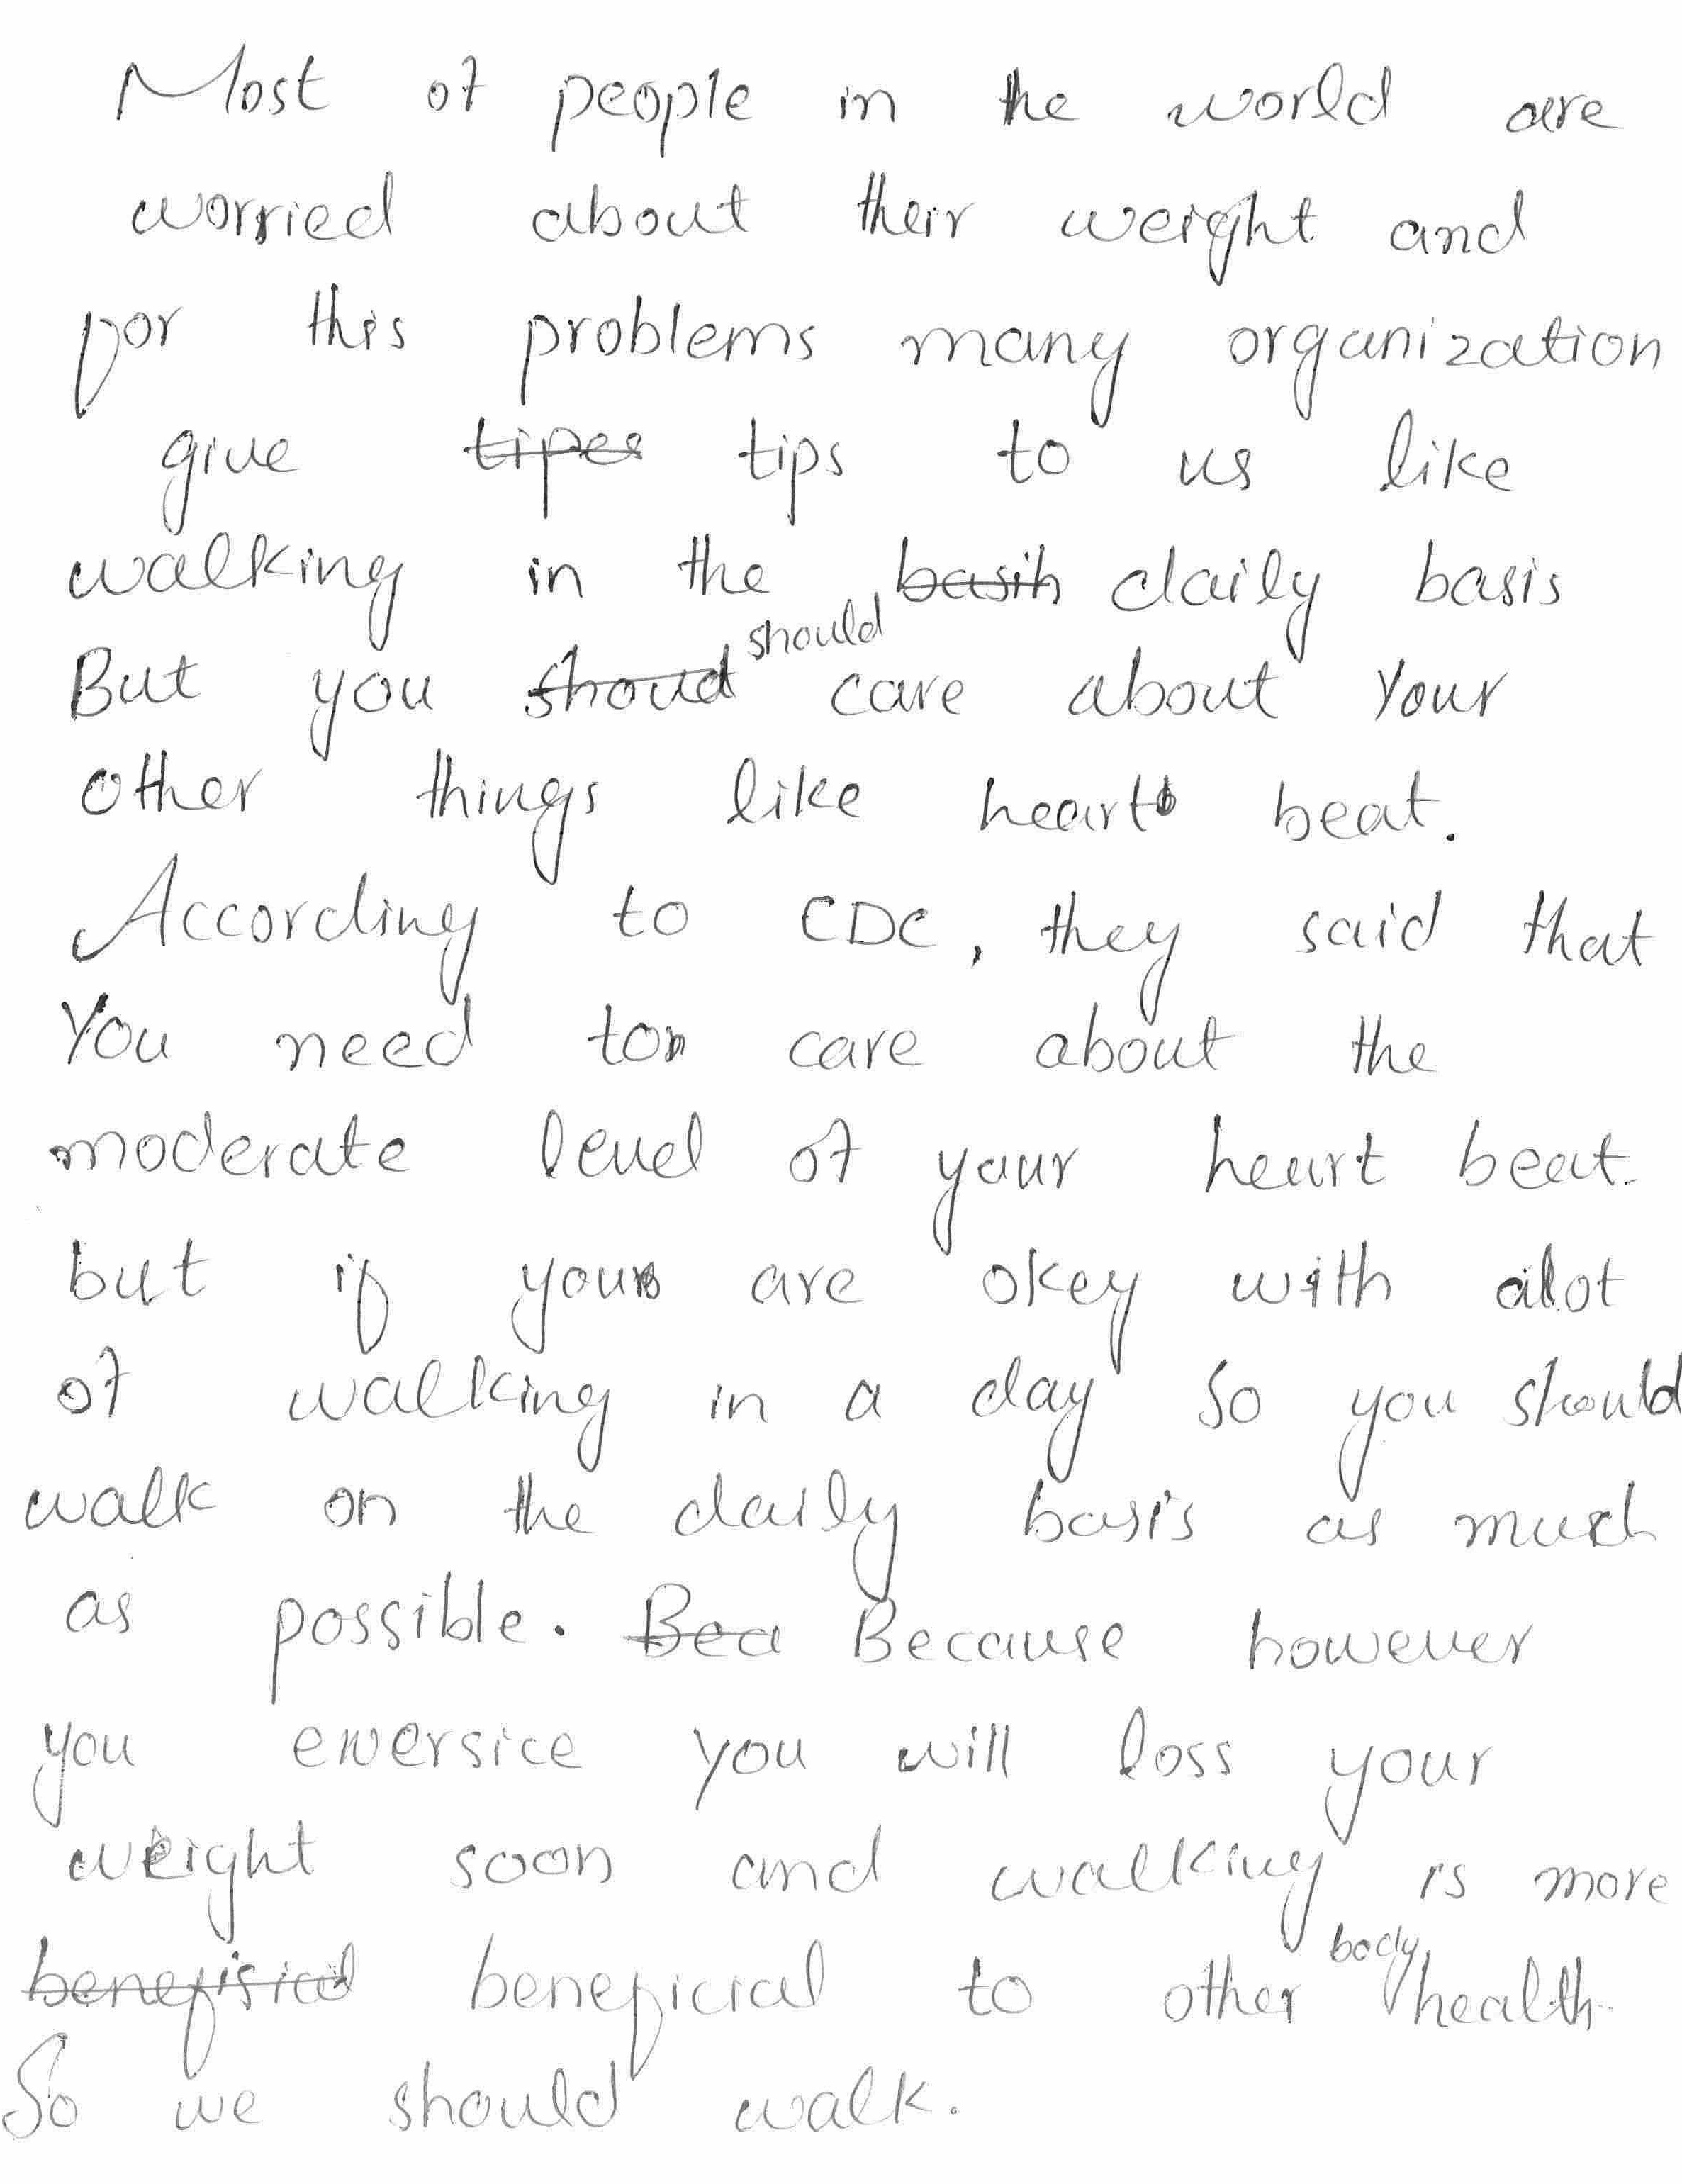 Most of people in the world are
worried about their weight and
for this problems many organization
give ~~tipes~~ tips to us like
walking in the ~~basih~~ daily basis
But you ~~shoud~~ should care about your
other things like heart beat.
According to CDC, they said that
You need to care about the
moderate level of your heart beat.
but if you are okey with alot
of walking in a day so you should
walk on the daily basis as much
as possible. ~~Bea~~ Because however
you exersice you will loss your
weight soon and walking is more
~~benefisical~~ beneficial to other body health.
So we should walk.